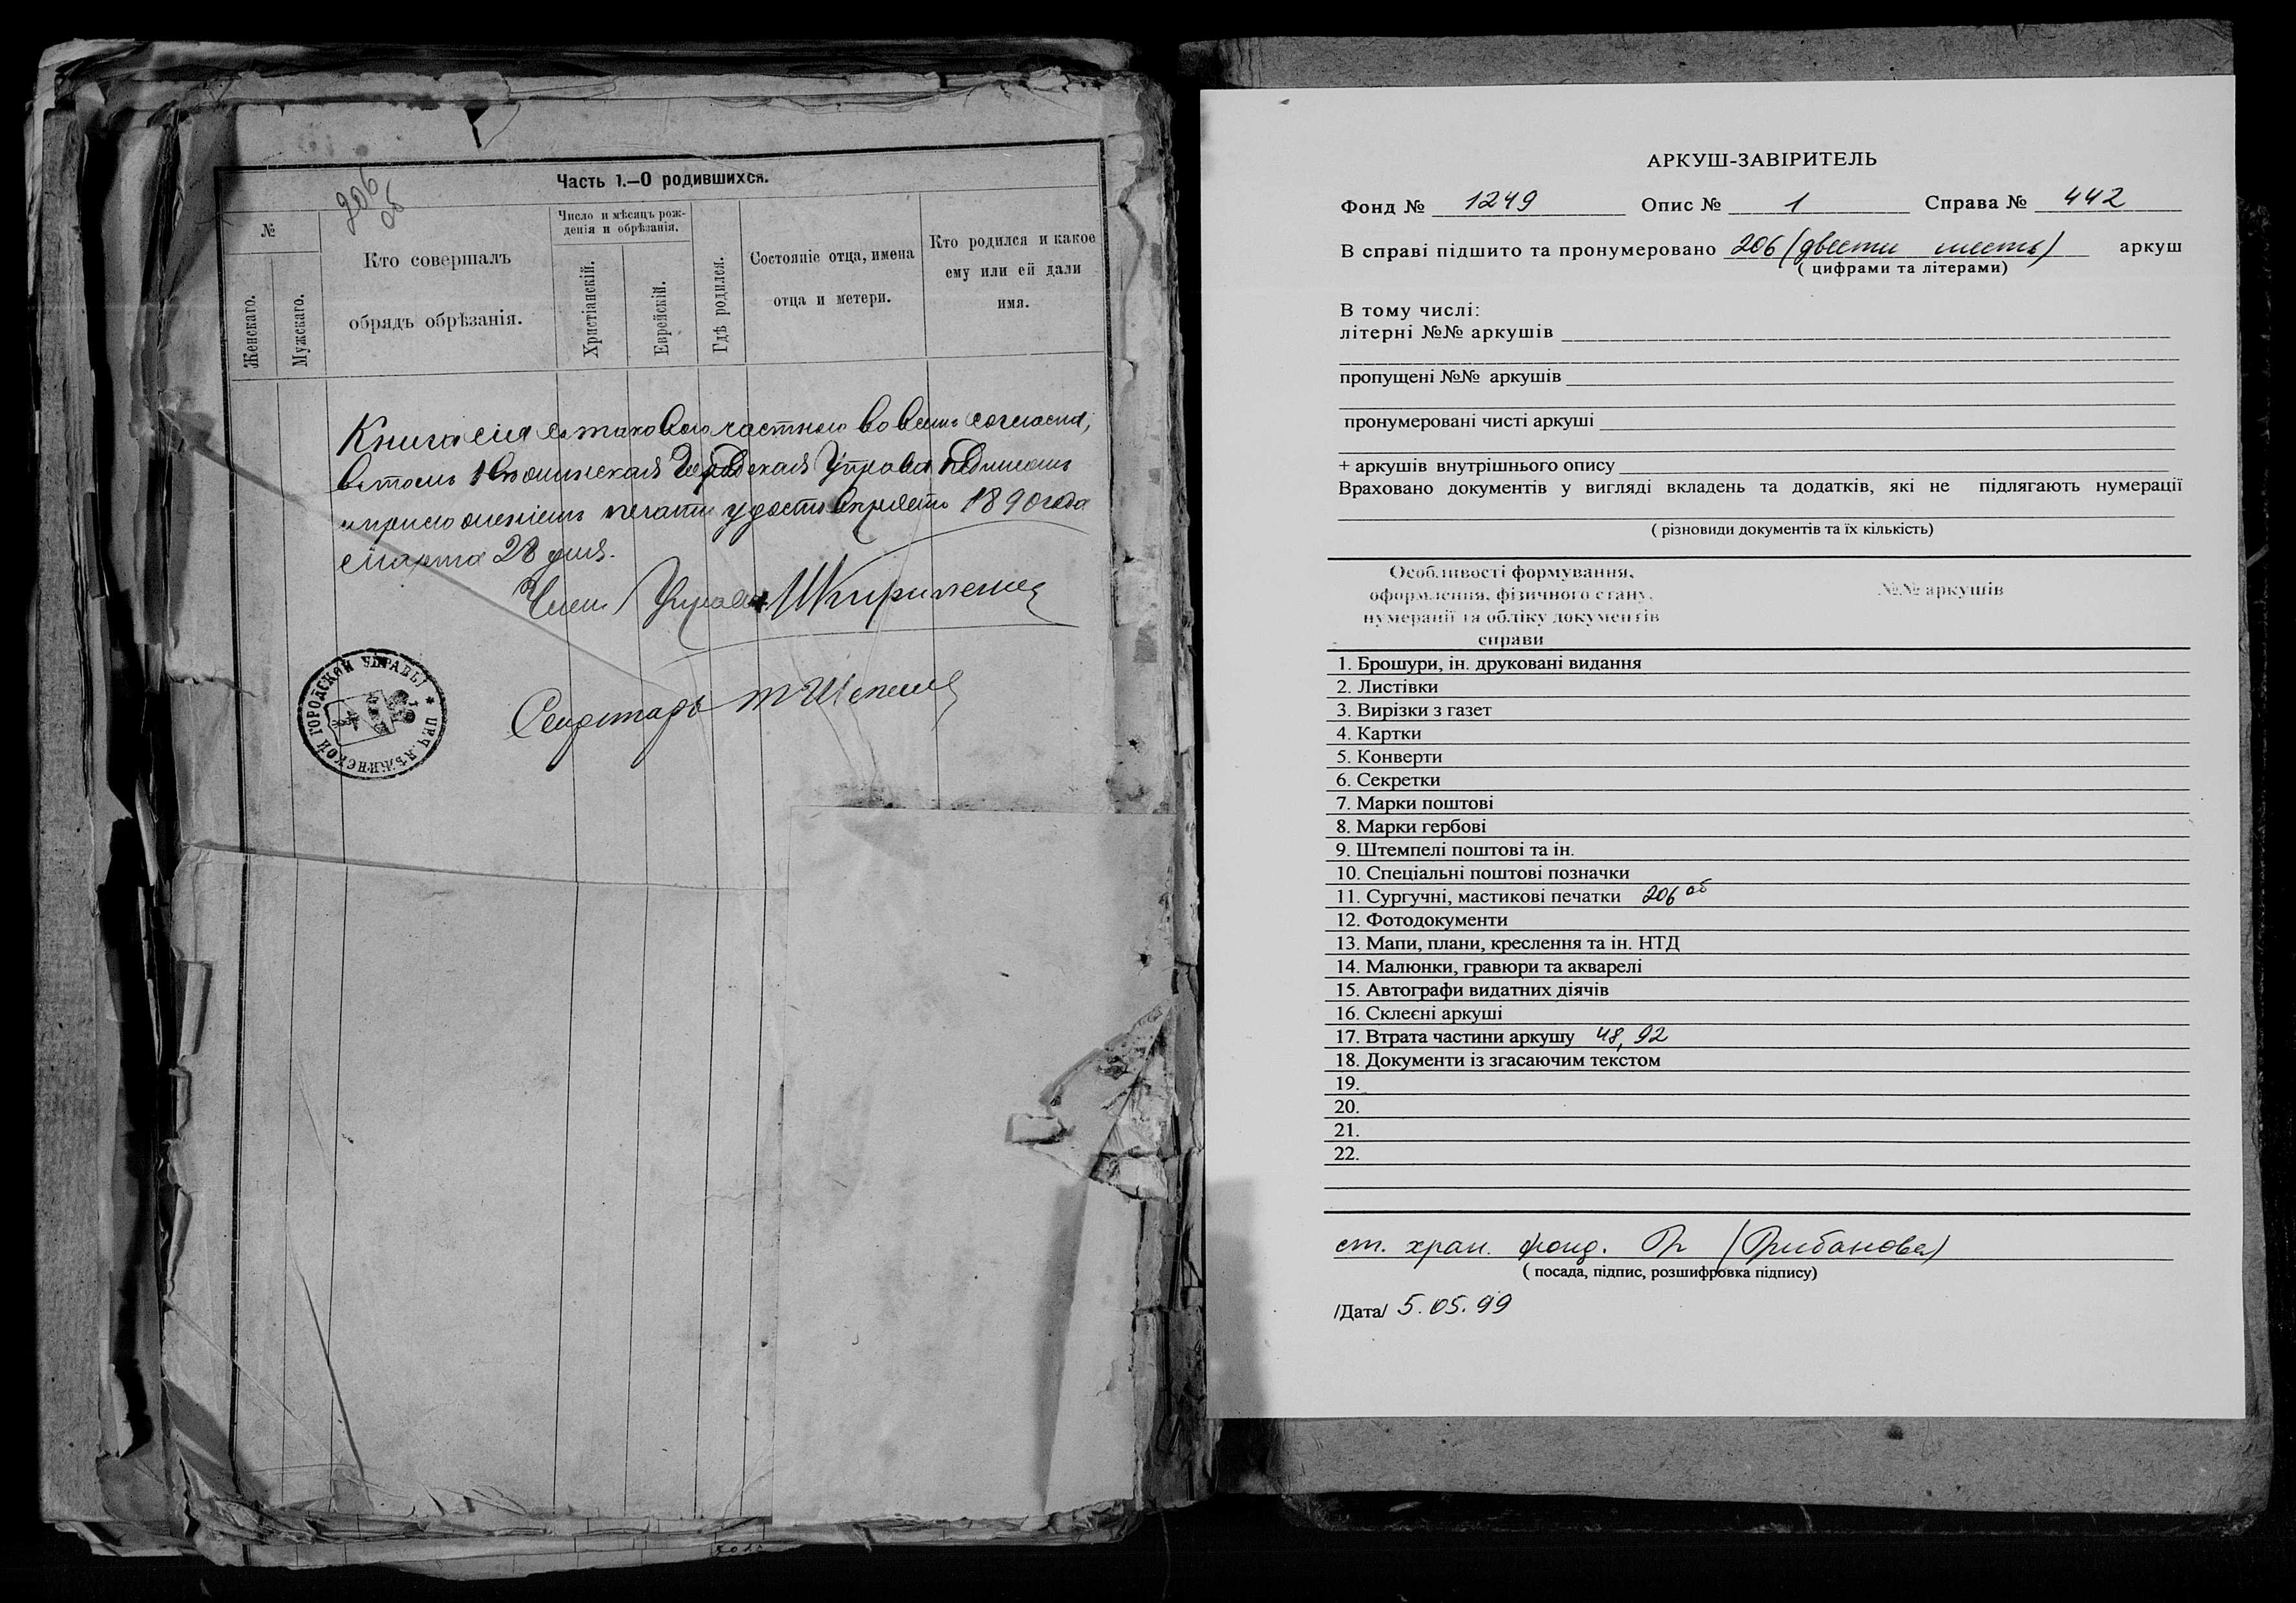 206
об
Часть 1.—О родившихся.
№
Женскаго.
Мужскаго.
Кто совершалъ
обрядъ обрѣзанія.
Число и мѣсяцъ рож-
денія и обрѣзанія.
Христіанскій.
Еврейскій.
Гдѣ родился.
Состояніе отца, имена
отца и метери.
Кто родился и какое
ему или ей дали
имя.
Книга сія съ таковою частною во всемъ согласна,
въ томъ Нѣжинская Городская Управа подписомъ
и приложеніемъ печати удостовѣряетъ 1890 года
Марта 28 дня.
Членъ Управы
Секретарь
НѢЖИНСКОЙ ГОРОДСКОЙ УПРАВЫ
АРКУШ-ЗАВІРИТЕЛЬ
Фонд № 1249 Опис № 1 Справа № 442
В справі підшито та пронумеровано 206 (двести шесть) аркуш
( цифрами та літерами)
В тому числі:
літерні №№ аркушів
пропущені №№ аркушів
пронумеровані чисті аркуші
+ аркушів внутрішнього опису
Враховано документів у вигляді вкладень та додатків, які не підлягають нумерації
( різновиди документів та їх кількість)
Особливості формування,
оформлення, фізичного стану,
нумерації та обліку документів
справи
№№ аркушів
1. Брошури, ін. друковані видання
2. Листівки
3. Вирізки з газет
4. Картки
5. Конверти
6. Секретки
7. Марки поштові
8. Марки гербові
9. Штемпелі поштові та ін.
10. Спеціальні поштові позначки
11. Сургучні, мастикові печатки 206 об
12. Фотодокументи
13. Мапи, плани, креслення та ін. НТД
14. Малюнки, гравюри та акварелі
15. Автографи видатних діячів
16. Склеєні аркуші
17. Втрата частини аркушу 48, 92
18. Документи із згасаючим текстом
19.
20.
21.
22.
ст. хран. фонд. (Грибанова)
( посада, підпис, розшифровка підпису)
/Дата/ 5.05.99